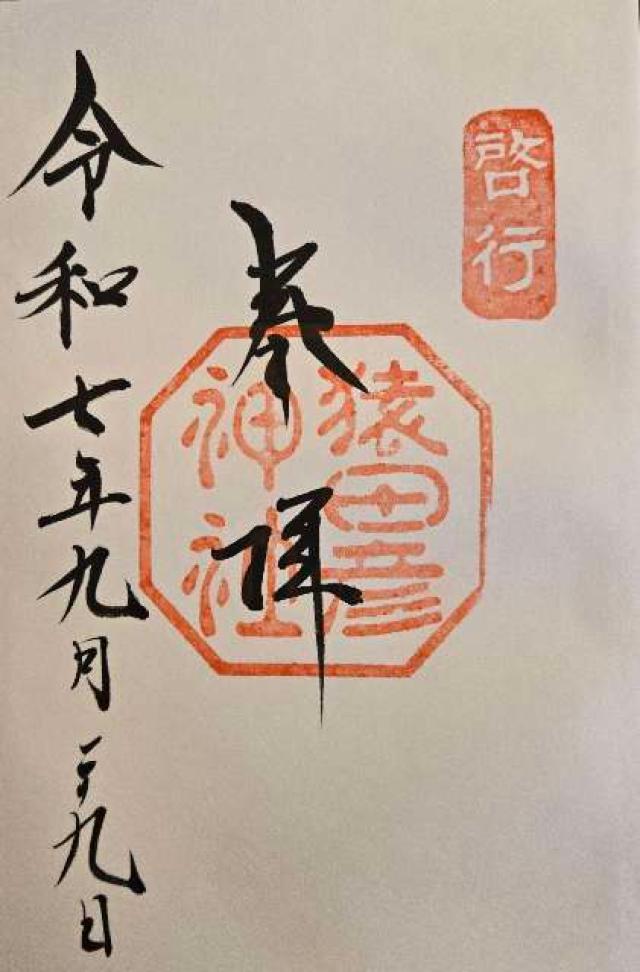 啓行
奉拝
猿田彦
神社
令和七年九月二十九日